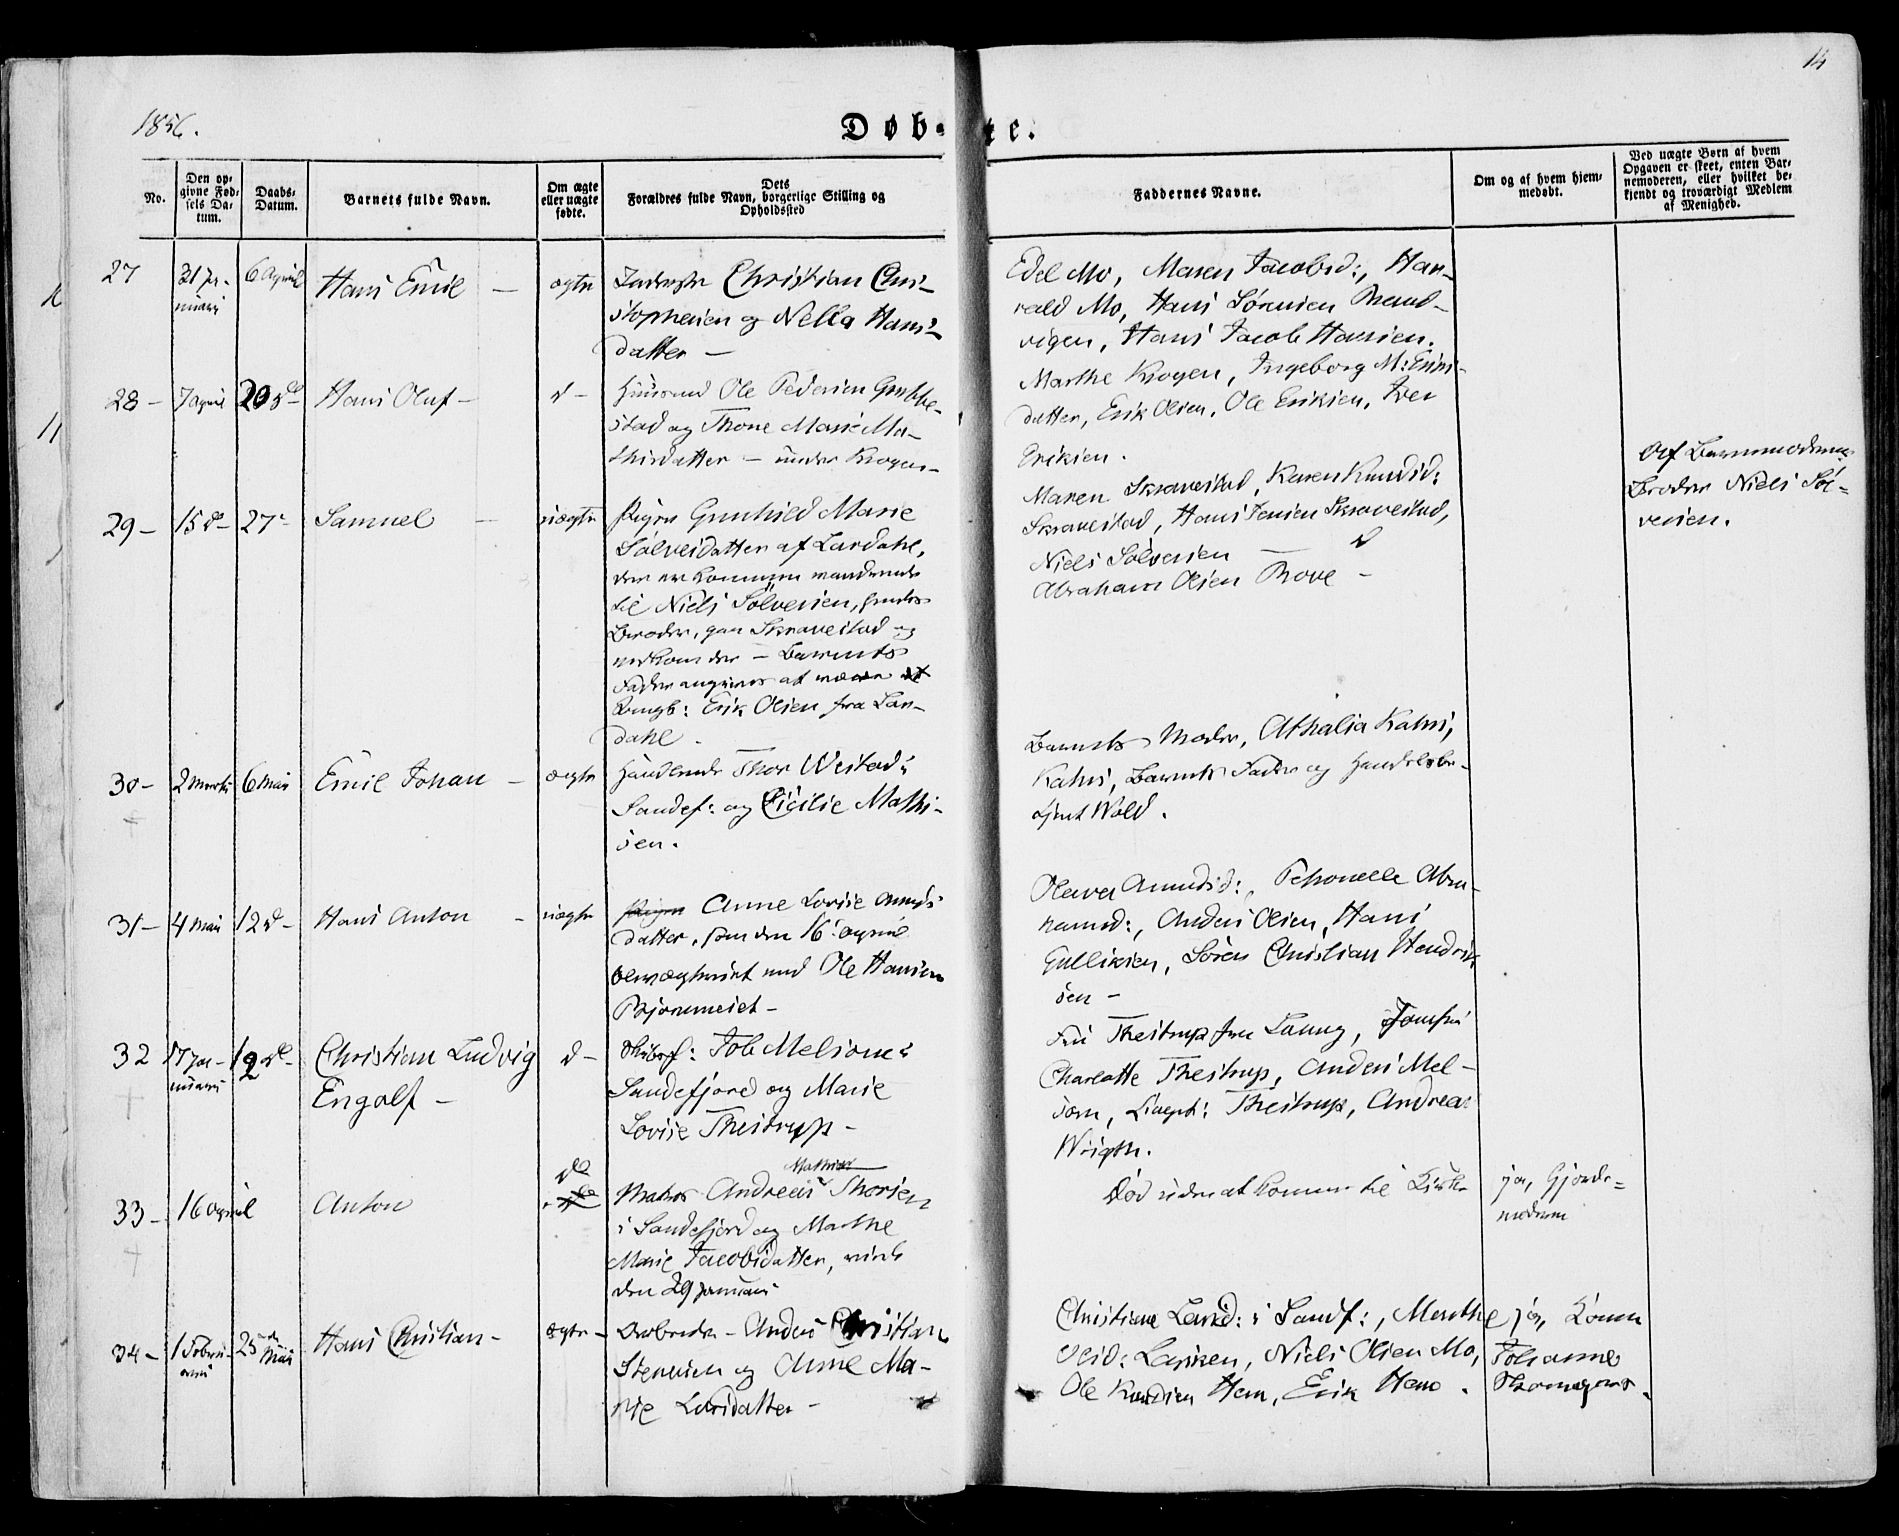 14
1856.
Døb- te.
No.
Den op-
givne Fød-
sels Da-
tum.
Daabs-
Datum.
Barnets fulde Navn.
Om ægte
eller uægte
fødte.
Dets
Forældres fulde Navn, borgerlige Stilling og
Opholdssted
Faddernes Navne.
Om og af hvem hjem-
medøbt.
Ved uægte Børn af hvem
Opgaven er skeet, enten Bar-
nemoderen, eller hvilket be-
kjendt og troværdigt Medlem
af Menighed.
27 21 Ja-
nuari 6 April Hans Emil — ægte
Inderste Christian Chri-
stophersen og Nella Hans-
datter —
Edel Mo, Maren Jacobsd:, Har-
vald Mo, Hans Sørensen
vigen, Hans Jacob Hansen.
28 - 7 April 20 de Hans Oluf - d -
Huusmd Ole Pedersen
stad og Thone Marie Ma-
thisdatter - under Krogen -
Marthe Krogen, Ingeborg M: Eriks-
datter, Erik Olsen, Ole Eriksen, Iver
Eriksen.
29 - 15 de 27 - Samuel — uægte
Pigen Gunhild Marie
Sølvesdatter af Lardahl,
der er kommen vandrende
til Niels Sølvesen, hendes
Broder, paa Skravestad og
nedkom der - Barnets
Fader angives at være
Ungk: Erik Olsen fra Lar-
dahl -
Maren Skravestad, Karen Knudsd:
Skravestad, Hans Jensen Skravestad,
Niels Sølvesen — d
Abraham Olsen Bove -
Af Barnmoderens
Broder Niels Søl-
vesen.
30 - 2 Marts 6 Mai Emil Johan - ægte
Handlende Thor Westad i
Sandef: og Cicilie Mathi-
sen.
Barnets Moder, Athalia Kahrs,
Kahrs, Barnets Fader og Handelsbe-
tjent Wold.
31 - 4 Mai 12 d - Hans Anton - uægte
Pigen Anne Lovise Amunds
datter, som den 16 April
blev ægteviet med Ole Hansen
Bjønnemeiet -
Oleva Amundsd:, Petronelle Abra-
hamsd:, Anders Olsen, Hans
Gulliksen, Søren Christian Hendrik
sen -
32 17 Ja-
nuari 12 de - Christian Ludvig
Engolf - d -
Skibsf: Job Melsom i
Sandefjord og Marie
Lovise Thestrup -
Fru Thestrup fra Laurvig, Jomfru
Charlotte Thestrup, Anders Mel-
som, Thestrup, Andreas
Wrigth.
33 - 16 April Anton de
Matros Andreas Mathias Thorsen
i Sandefjord og Marthe
Marie Jacobsdatter, viede
den 29 Januari
Død uden at komme til Kirke
ja, Gjorde-
moderen
34 - 1 Febru-
ari 25 de Mai Hans Christian - ægte -
Anders Christian
Stensen og Anne Ma-
rie Larsdatter -
Christiane Larsd: i Sandf:, Marthe
Larsen, Niels Olsen Mo,
Ole Knudsen Hem, Erik Hem.
ja, Konen
Johanne